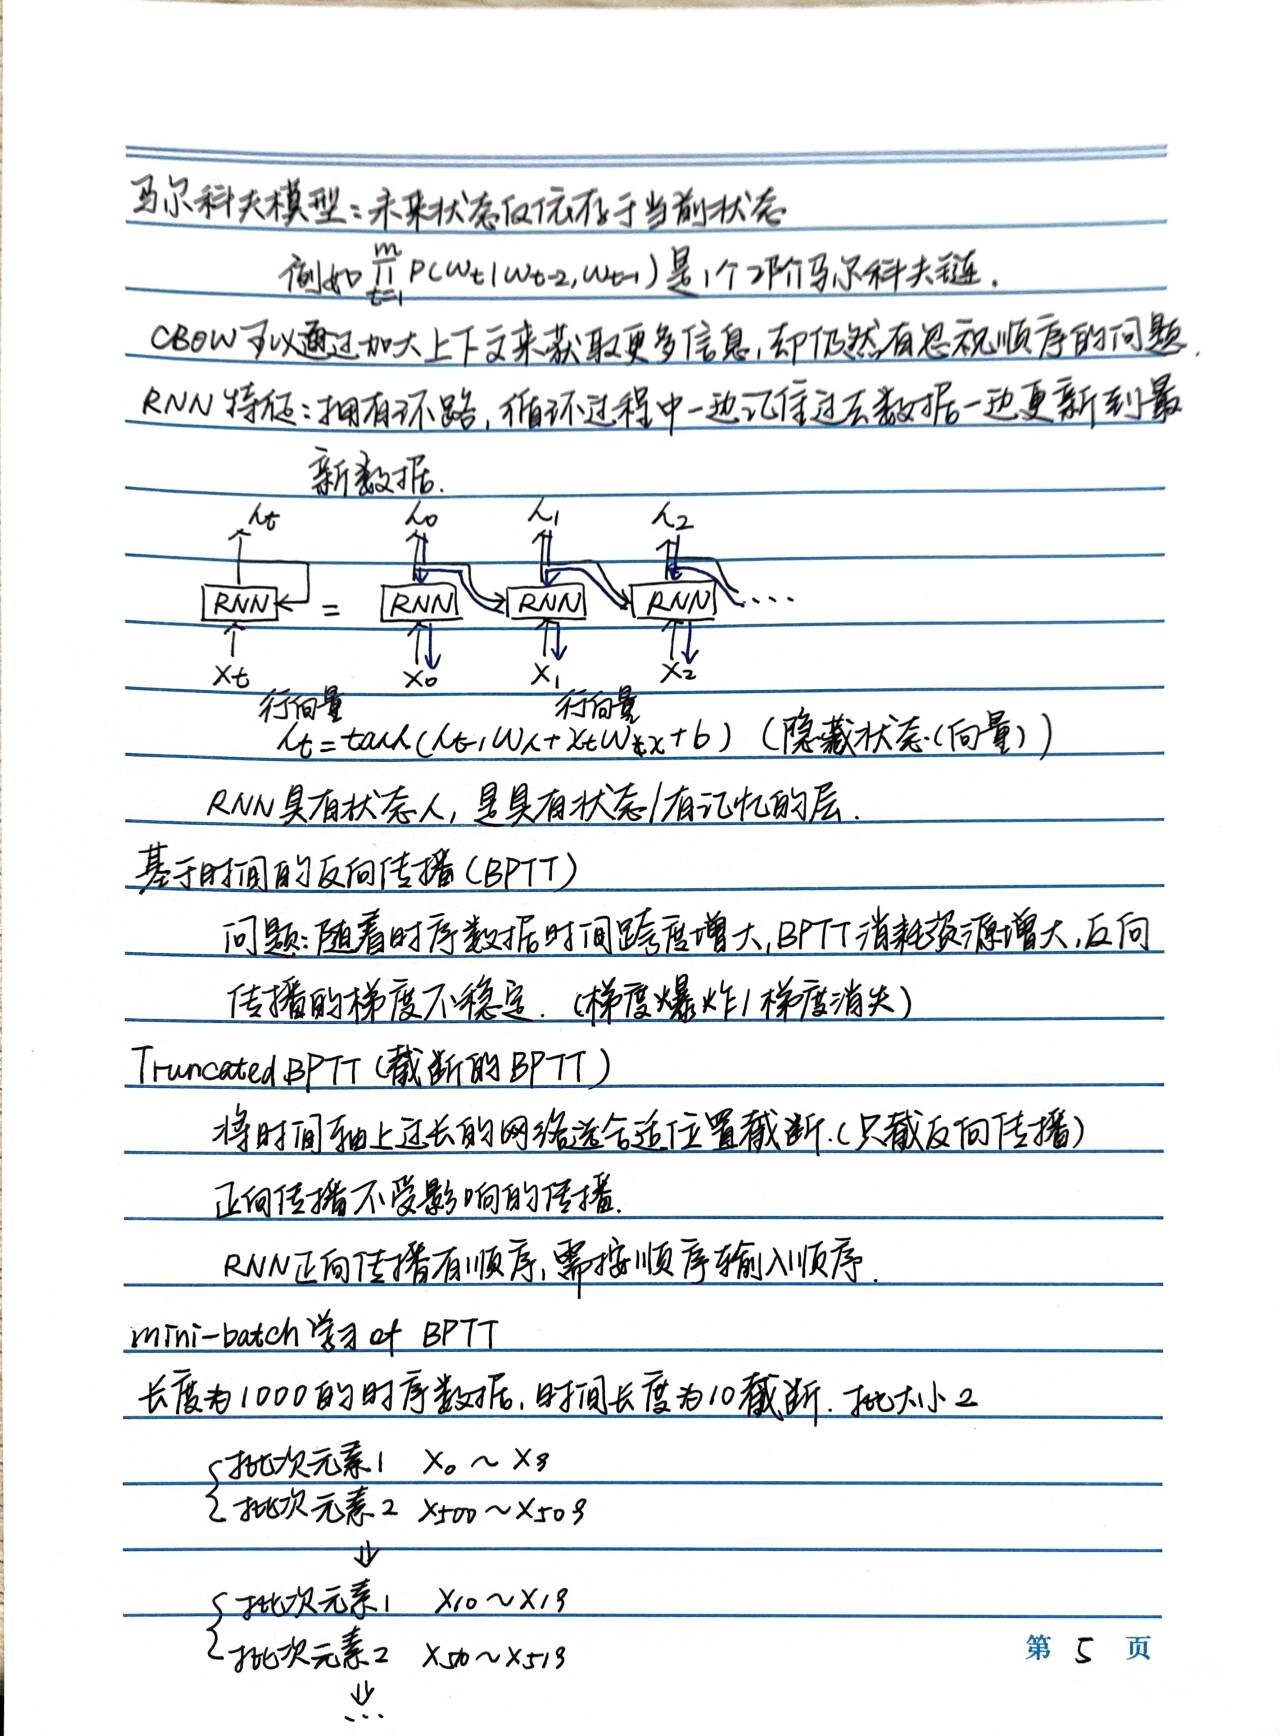 马尔科夫模型：未来状态仅依存于当前状态
例如 ∏_{t=1}^{m} P(Wt|Wt-2,Wt-1)是1个2阶马尔科夫链.
CBOW可以通过加大上下文来获取更多信息,却仍然有忽视顺序的问题.
RNN特征：拥有环路,循环过程中一边记住过去数据一边更新到最
新数据.
ht h0 h1 h2
RNN = RNN RNN RNN ...
Xt X0 X1 X2
行向量 行向量
ht=tanh(ht-1Wh+XtWx+b) (隐藏状态(向量))
RNN具有状态h,是具有状态/有记忆的层.
基于时间的反向传播(BPTT)
问题:随着时序数据时间跨度增大,BPTT消耗资源增大,反向
传播的梯度不稳定.(梯度爆炸/梯度消失)
Truncated BPTT(截断的BPTT)
将时间轴上过长的网络选合适位置截断.(只截反向传播)
正向传播不受影响的传播.
RNN正向传播有顺序,需按顺序输入顺序.
mini-batch学习of BPTT
长度为1000的时序数据,时间长度为10截断.批大小2
批次元素1 X0～X9
批次元素2 X500～X509
↓
批次元素1 X10～X19
批次元素2 X510～X519
↓
...
第 5 页